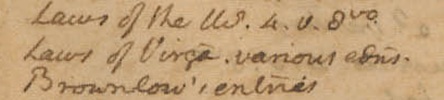 Laws of the US. 4. v. 8vo.
Laws of Virga. various edns.
Brownlow's entries